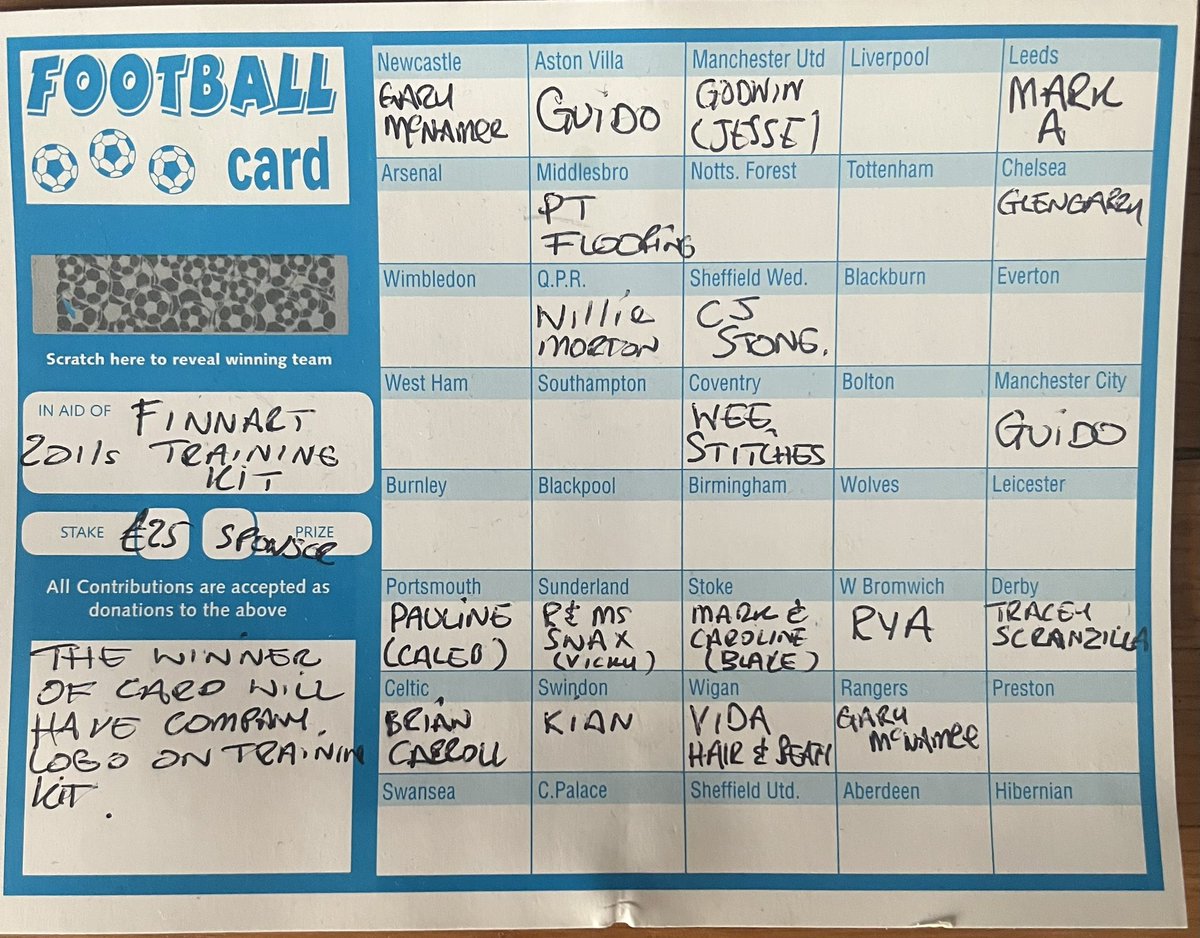 FOOTBALL
card
Scratch here to reveal winning team
IN AID OF FINNART
2011s TRAINING
KIT
STAKE £25 SPONSOR PRIZE
All Contributions are accepted as
donations to the above
THE WINNER
OF CARD WILL
HAVE COMPANY
LOGO ON TRAININ
KIT.
Newcastle
GARY
McNAMEE
Aston Villa
GUIDO
Manchester Utd
GODWIN
(JESSE)
Liverpool
Leeds
MARK
A
Arsenal
Middlesbro
PT
FLOORING
Notts. Forest
Tottenham
Chelsea
GLENGARRY
Wimbledon
Q.P.R.
Willie
MORTON
Sheffield Wed.
CJ
STONE.
Blackburn
Everton
West Ham
Southampton
Coventry
WEE
STITCHES
Bolton
Manchester City
GUIDO
Burnley
Blackpool
Birmingham
Wolves
Leicester
Portsmouth
PAULINE
(CALEB)
Sunderland
R & MS
SNAX
(VICKY)
Stoke
MARK &
CAROLINE
(BLAKE)
W Bromwich
RYA
Derby
TRACEY
SCRANZILLA
Celtic
BRIAN
CARROLL
Swindon
KIAN
Wigan
VIDA
HAIR & BEATY
Rangers
GARY
McNAMEE
Preston
Swansea
C.Palace
Sheffield Utd.
Aberdeen
Hibernian